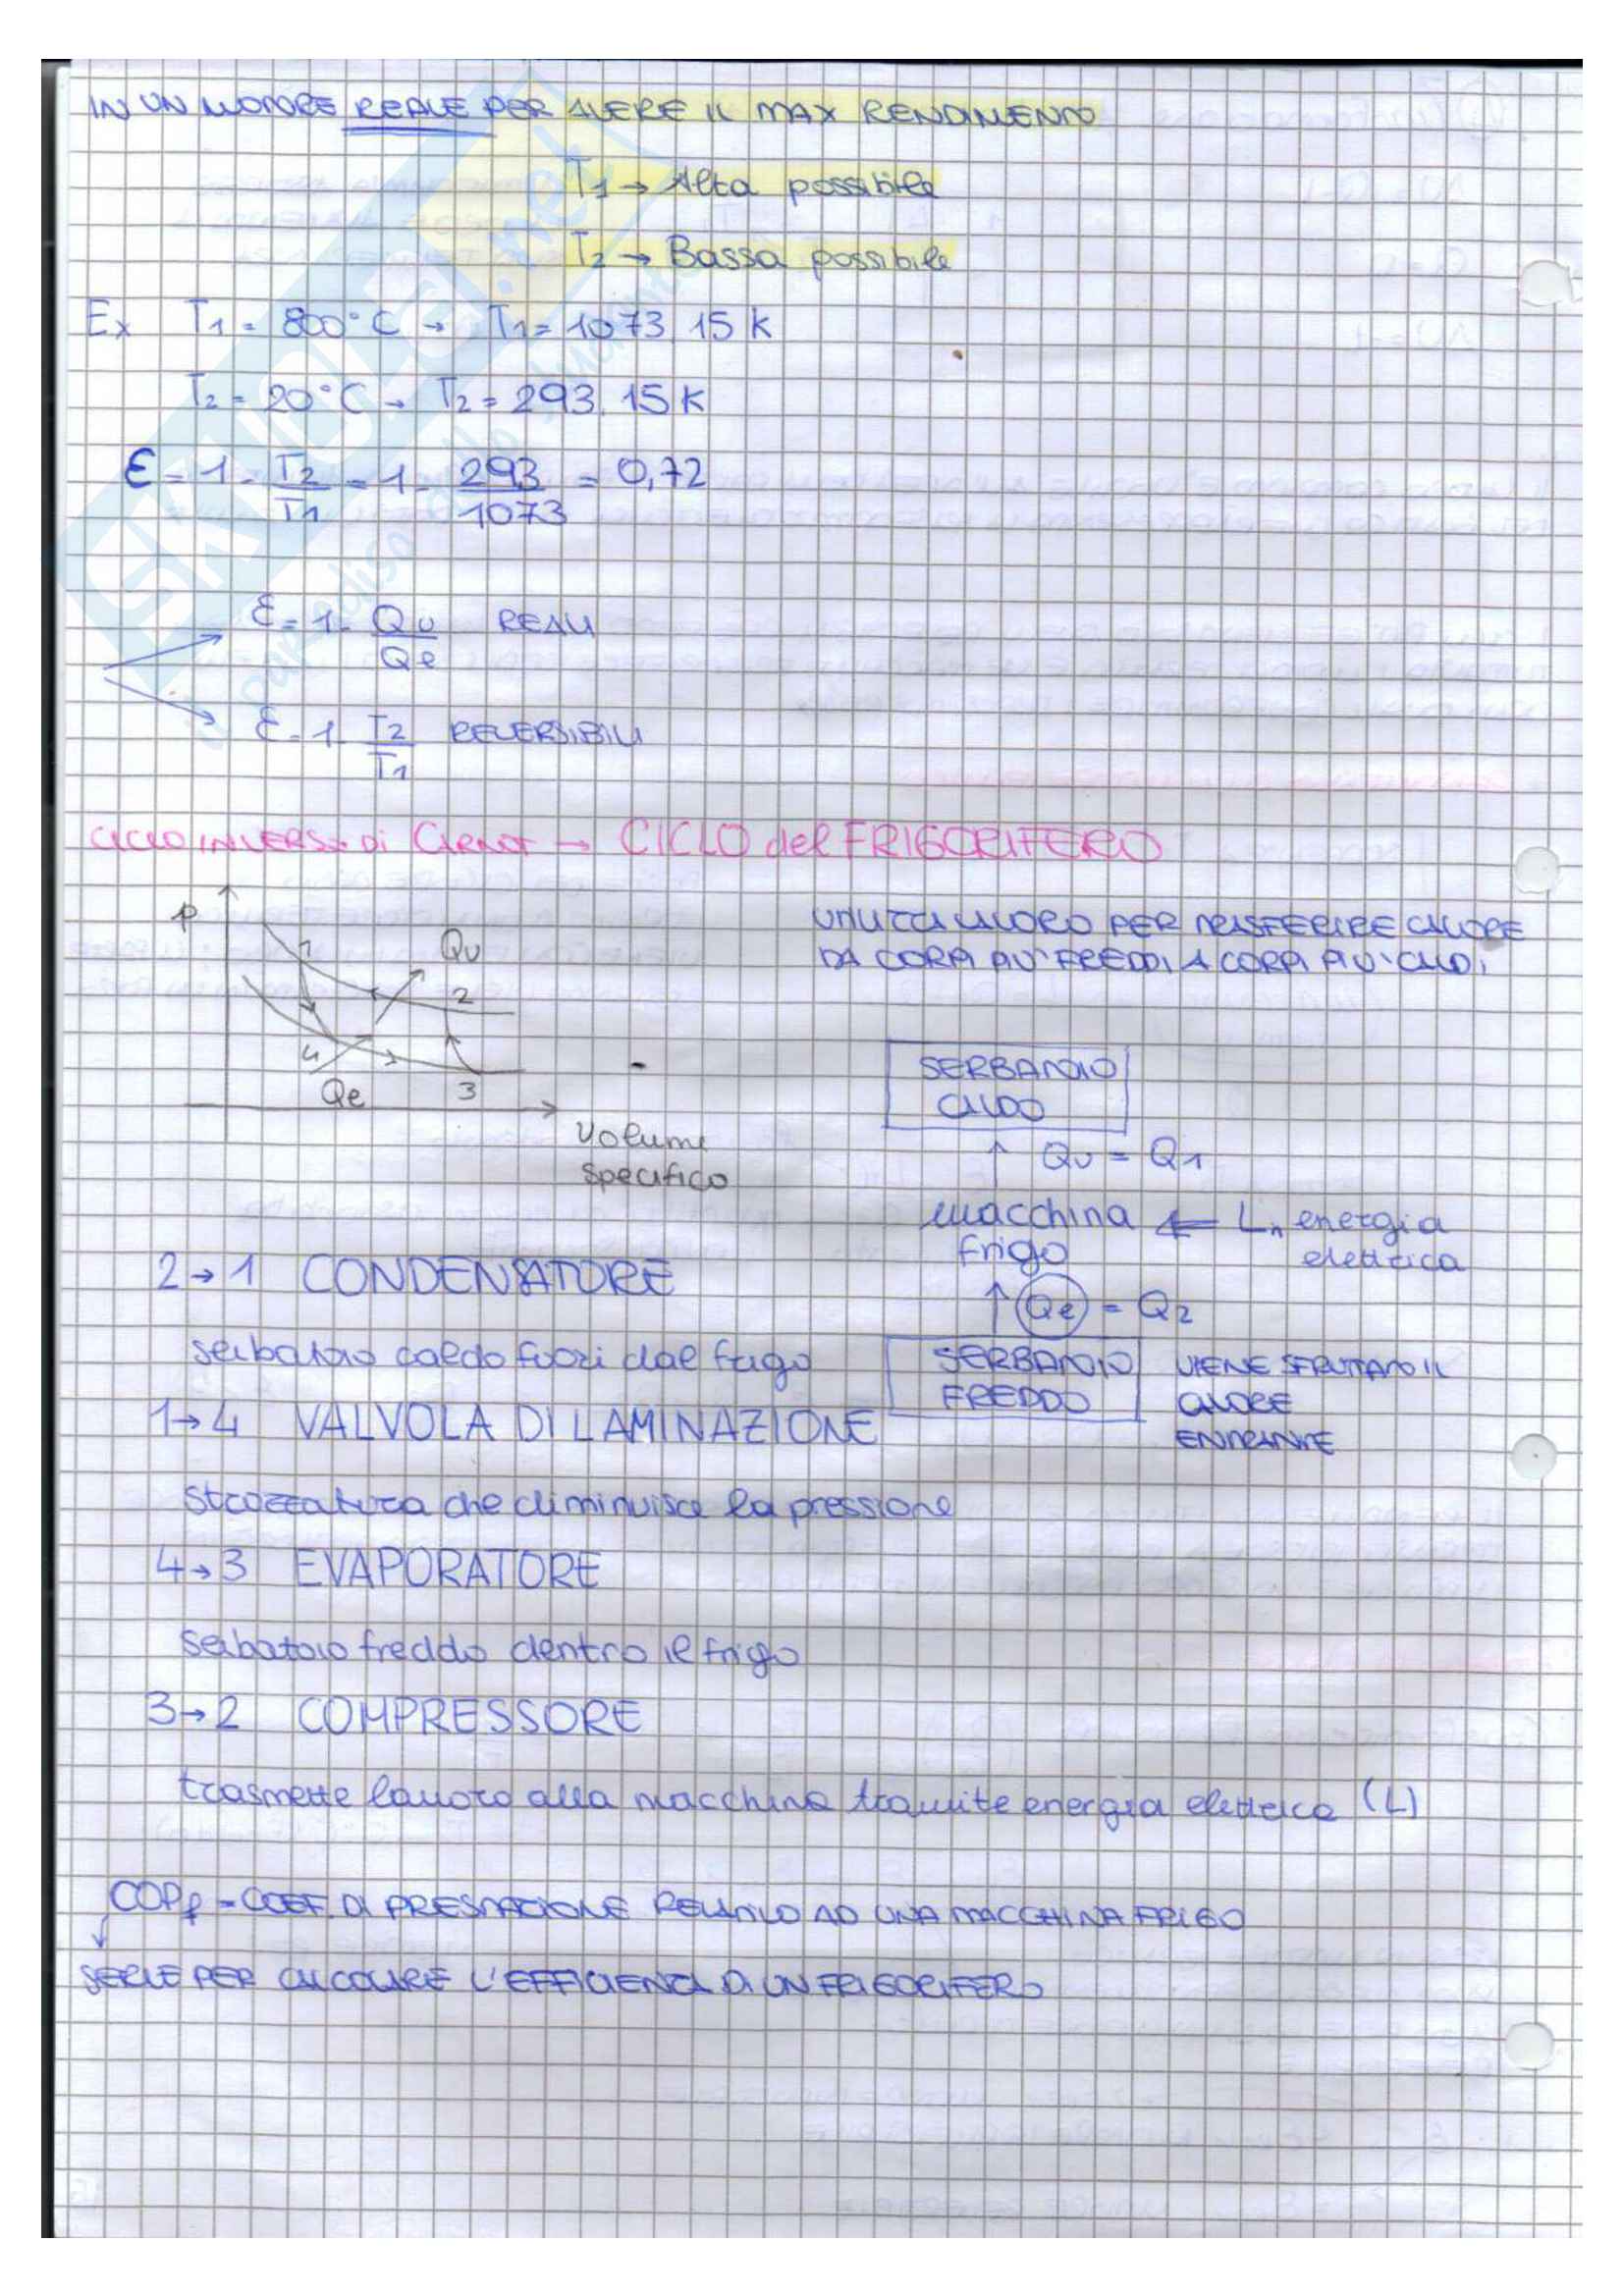 IN UN MOTORE REALE PER AVERE IL MAX RENDIMENTO
T1 → Alta possibile
T2 → Bassa possibile
Ex T1 = 800°C → T1 = 1073,15 K
T2 = 20°C → T2 = 293,15 K
ε = 1 - T2/T1 = 1 - 293/1073 = 0,72
ε = 1 - Qu/Qe REALI
ε = 1 - T2/T1 REVERSIBILI
CICLO INVERSO DI CARNOT → CICLO del FRIGORIFERO
UTILIZZA LAVORO PER TRASFERIRE CALORE
DA CORPI PIU' FREDDI A CORPI PIU' CALDI
p
1
Qu
2
4
Qe
3
Volume
specifico
SERBATOIO
CALDO
↑ Qu = Q1
macchina ⇐ Ln energia
frigo elettrica
↑ Qe = Q2
SERBATOIO
FREDDO
VIENE SFRUTTATO IL
CALORE
ENTRANTE
2→1 CONDENSATORE
serbatoio caldo fuori dal frigo
1→4 VALVOLA DI LAMINAZIONE
strozzatura che diminuisce la pressione
4→3 EVAPORATORE
serbatoio freddo dentro il frigo
3→2 COMPRESSORE
trasmette lavoro alla macchina tramite energia elettrica (L)
COPf = COEF. DI PRESTAZIONE RELATIVO AD UNA MACCHINA FRIGO
SERVE PER CALCOLARE L'EFFICIENZA DI UN FRIGORIFERO
SKUOLA.net